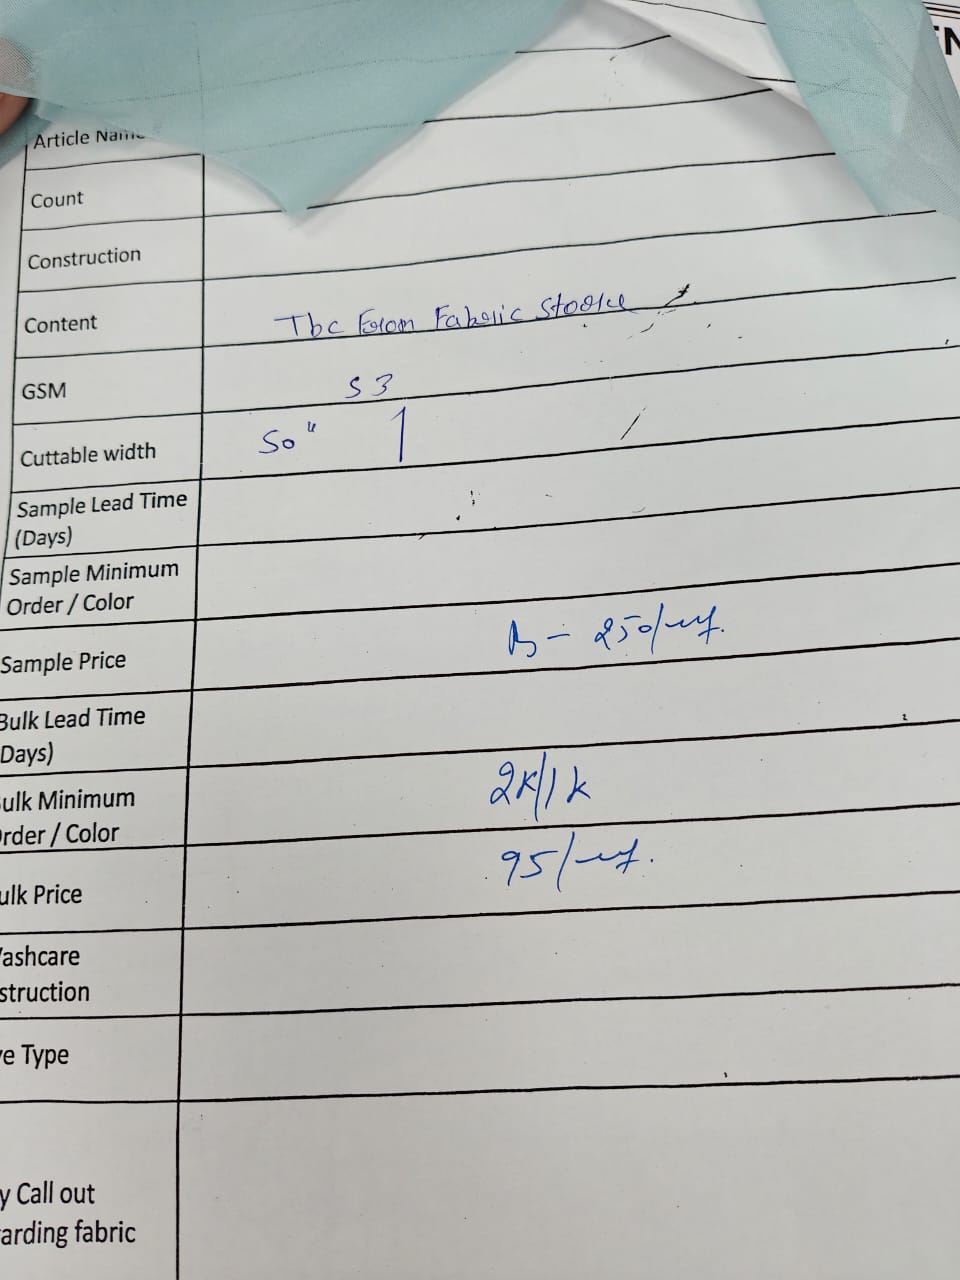 EN
Article Name
Count
Construction
Content Tbc From Fabric Store
GSM 53
Cuttable width 50"
Sample Lead Time
(Days)
Sample Minimum
Order / Color
Sample Price 250/
Bulk Lead Time
Days)
ulk Minimum 2k/1k
rder / Color
ulk Price 95/
ashcare
struction
e Type
y Call out
arding fabric